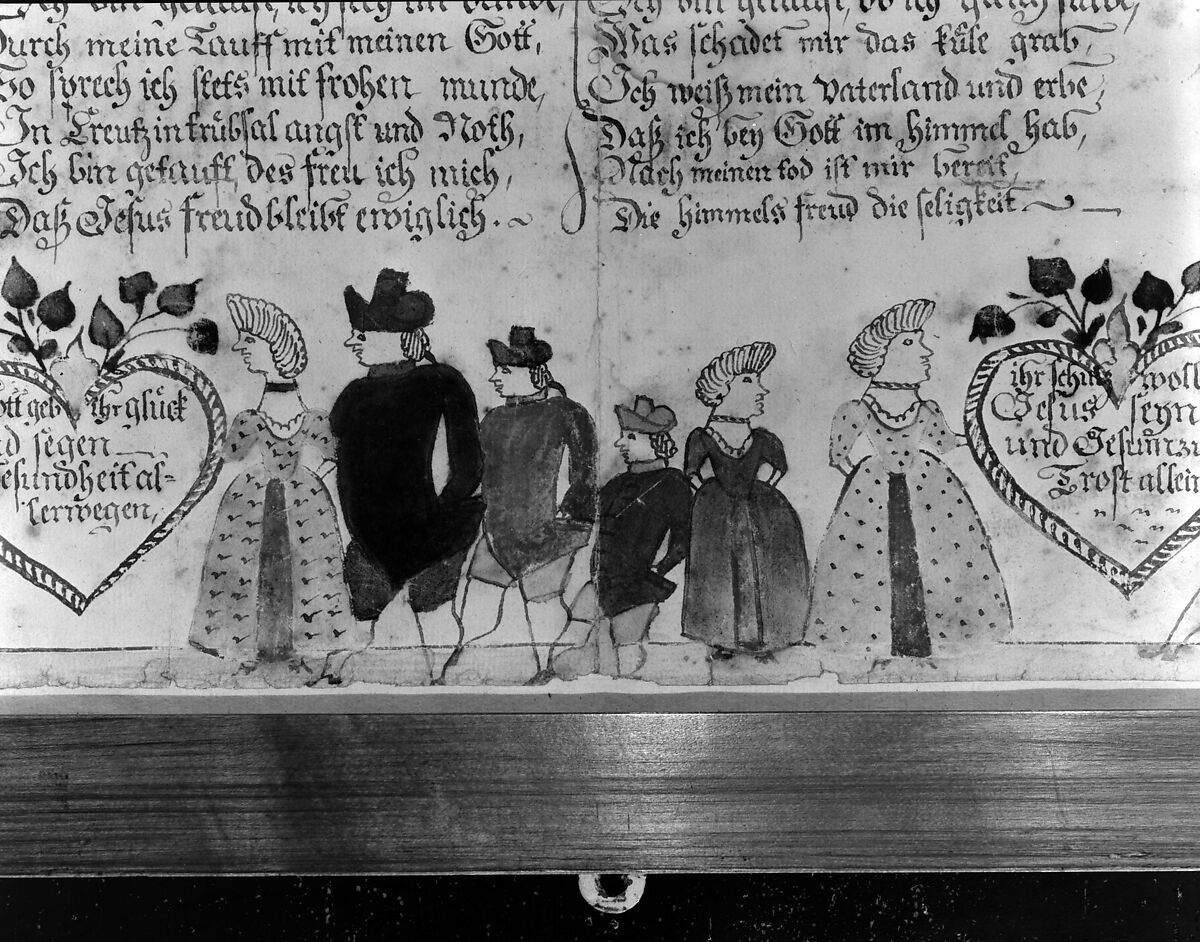 Ich bin getauft, ich steh im bunde,
Durch meine Tauff mit meinen Gott,
So sprech ich stets mit frohen munde,
In Creutz in trübsal angst und Noth,
Ich bin getauft, des freu ich mich,
Daß Jesus freud bleibt ewiglich.
Ich bin getauft, ob ich gleich sterbe,
Was schadet mir das küle grab,
Ich weiß mein vaterland und erbe,
Daß ich bey Gott im himmel hab,
Nach meinen tod ist mir bereit,
Die himmels freud die seligkeit.
ott geb ihr glück
nd segen
esundheit al=
lerwegen,
ihr schutz woll
Jesus seyn
und
Trost allein